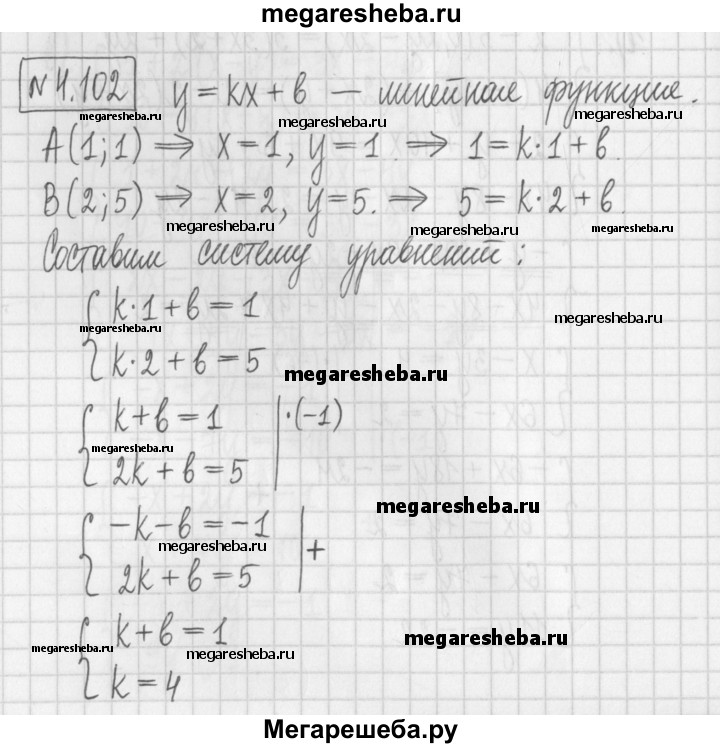 megaresheba.ru
№ 4.102 y = kx + b — линейная функция.
megaresheba.ru megaresheba.ru
A(1; 1) ⇒ x = 1, y = 1. ⇒ 1 = k·1 + b.
B(2; 5) ⇒ x = 2, y = 5. ⇒ 5 = k·2 + b.
megaresheba.ru megaresheba.ru
Составим систему уравнений:
{ k·1 + b = 1
megaresheba.ru megaresheba.ru
k·2 + b = 5
megaresheba.ru
{ k + b = 1 | ·(-1)
megaresheba.ru
2k + b = 5
megaresheba.ru
{ -k - b = -1 | +
megaresheba.ru
2k + b = 5
{ k + b = 1
megaresheba.ru megaresheba.ru megaresheba.ru
k = 4
Мегарешеба.ру